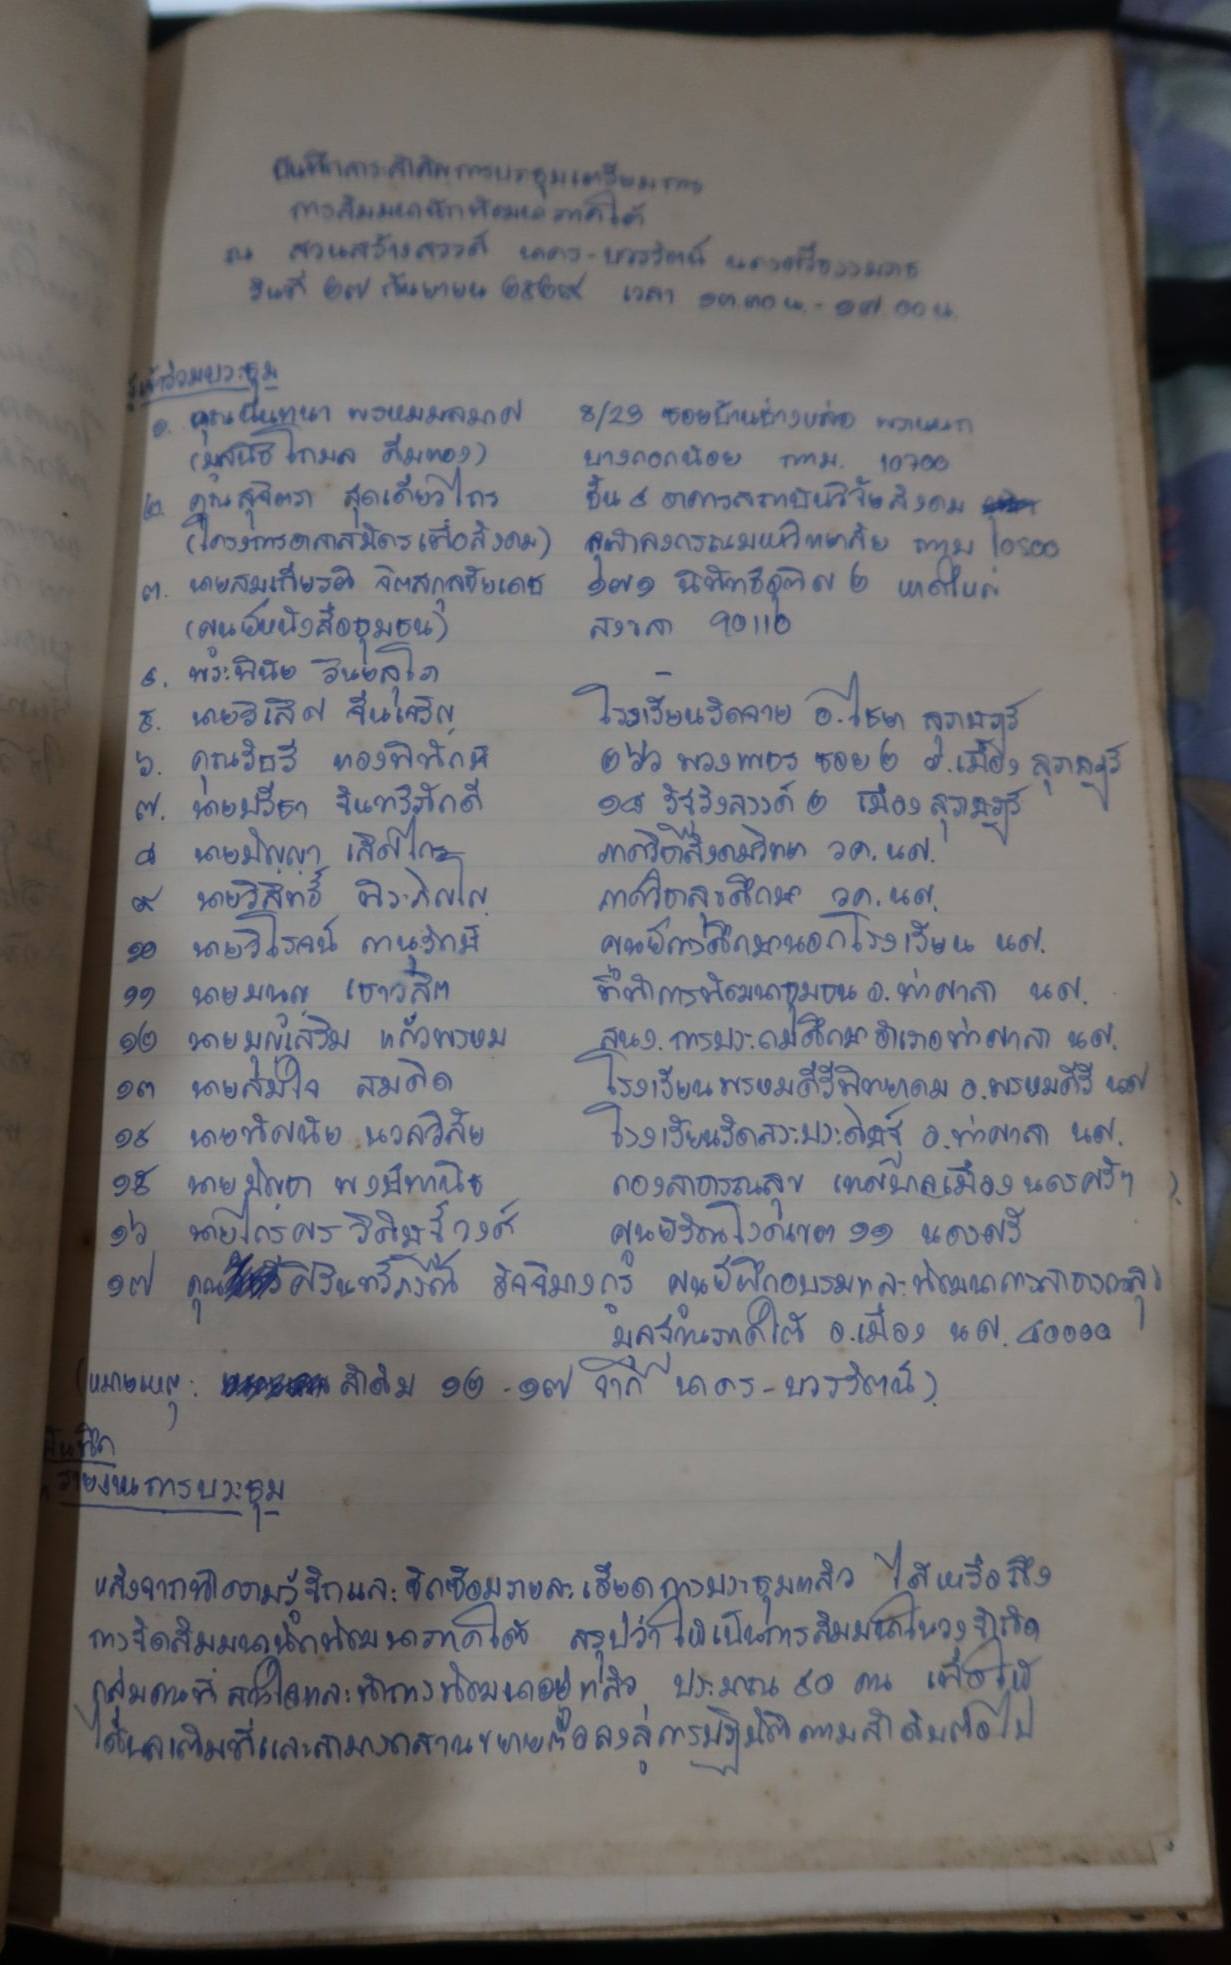 บันทึกสาระสำคัญการประชุมเตรียมการ
การสัมมนานักพัฒนาภาคใต้
ณ สวนสร้างสวรรค์ นาคร-บวรรัตน์ นครศรีธรรมราช
วันที่ ๒๗ กันยายน ๒๕๒๙ เวลา ๑๓.๓๐ น. - ๑๗.๐๐ น.
ผู้เข้าร่วมประชุม
๑. คุณนันทนา พรหมมลมาศ 8/23 ซอยบ้านช่างหล่อ พรานนก
(มูลนิธิโกมล คีมทอง) บางกอกน้อย กทม. 10700
๒. คุณสุจิตรา สุดเดียวไกร ชั้น ๔ อาคารสถาบันวิจัยสังคม
(โครงการอาสาสมัครเพื่อสังคม) จุฬาลงกรณมหาวิทยาลัย กทม 10500
๓. นายสมเกียรติ จิตสกุลชัยเดช ๑๗๑ นิพัทธ์อุทิศ ๒ หาดใหญ่
(ศูนย์หนังสือชุมชน) สงขลา 90110
๔. พระพินัย
๕. นายวิเลิศ จีนเจริญ โรงเรียน อ.ไชยา สุราษฎร์
๖. คุณวัชรี ทองพิทักษ์ ซอย ๒ อ.เมือง สุราษฎร์
๗. นายปรีชา จันทร์ภักดี ๒ เมือง สุราษฎร์
๘ นายปัญญา เลิศไกร ภาควิชาสังคมวิทยา วค. นศ.
๙ นายวิสุทธิ์ ภาควิชาสุขศึกษา วค. นศ.
๑๐ นายวิโรจน์ ศูนย์การศึกษานอกโรงเรียน นศ.
๑๑ นายมนูญ เชาวลิต ที่ทำการพัฒนาชุมชน อ.ท่าศาลา นศ.
๑๒ นายบุญเสริม แก้วพรหม สนง. การประถมศึกษาอำเภอท่าศาลา นศ.
๑๓ นายสมใจ สมคิด โรงเรียนพรหมคีรีพิทยาคม อ.พรหมคีรี นศ
๑๔ นายทัศนัย นวลวิลัย โรงเรียนวัดสระประดิษฐ์ อ.ท่าศาลา นศ.
๑๕ นายปัญชา พงษ์พานิช กองสาธารณสุข เทศบาลเมืองนครศรีฯ
๑๖ นายไกรศร วิศิษฐ์วงศ์ ศูนย์วัณโรคเขต ๑๑ นครศรี
๑๗ คุณ ศูนย์ฝึกอบรมและพัฒนาการสาธารณสุข
มูลฐานภาคใต้ อ.เมือง นศ. ๘๐๐๐๐
(หมายเหตุ : ลำดับ ๑๒ - ๑๗ จาก นาคร-บวรรัตน์)
บันทึก
รายงานการประชุม
หลังจากทำความรู้จักและซักซ้อมรายละเอียดการประชุมแล้ว ได้หารือถึง
การจัดสัมมนานักพัฒนาภาคใต้ สรุปว่าให้เป็นการสัมมนาในวงจำกัด
กลุ่มคนที่สนใจและทำการพัฒนาอยู่แล้ว ประมาณ ๔๐ คน เพื่อให้
ได้ผลเต็มที่และสามารถสานขยายต่อลงสู่การปฏิบัติตามลำดับต่อไป